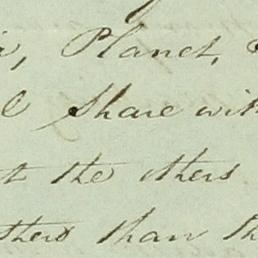 Planet,
Share with
the others
than th